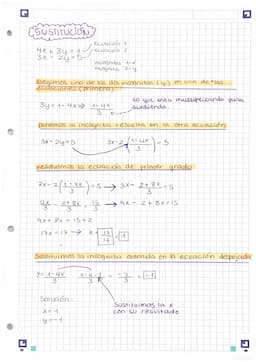 SUSTITUCIÓN
4x + 3y = 1 → ecuación 1
3x - 2y = 5 → ecuación 2
incógnita 1 → x
incógnita 2 → y
una de las dos incógnitas (y) en una de las
ecuaciones (primera)
3y = 1 - 4x → 1 - 4x / 3
lo que está multiplicando pasa
dividiendo
ponemos la incógnita resuelta en la otra ecuación
3x - 2y = 5 3x - 2 (1 - 4x / 3) = 5
resolvemos la ecuación de primer grado
3x - 2 (1 - 4x / 3) = 5 → 3x - 2 + 8x / 3 = 5
9x / 3 - 2 + 8x / 3 = 15 / 3 → 9x - 2 + 8x = 15
9x + 8x = 15 + 2
17x = 17 → x = 17 / 17 = 1
Sustituimos la incógnita obtenida en la ecuación despejada
y = 1 - 4x / 3 1 - 4 · 1 / 3 = -3 / 3 = -1
Solución:
x = 1
y = -1
Sustituimos la x
con su resultado